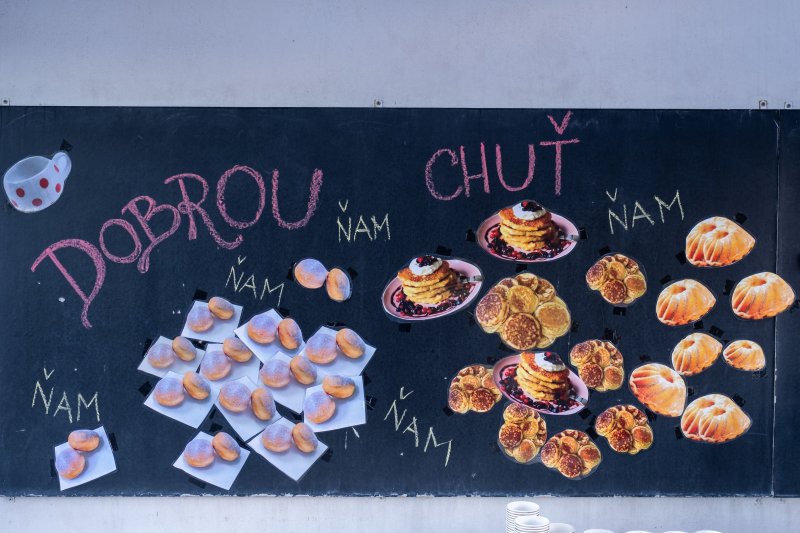 DOBROU CHUŤ
ŇAM
ŇAM
ŇAM
ŇAM
ŇAM